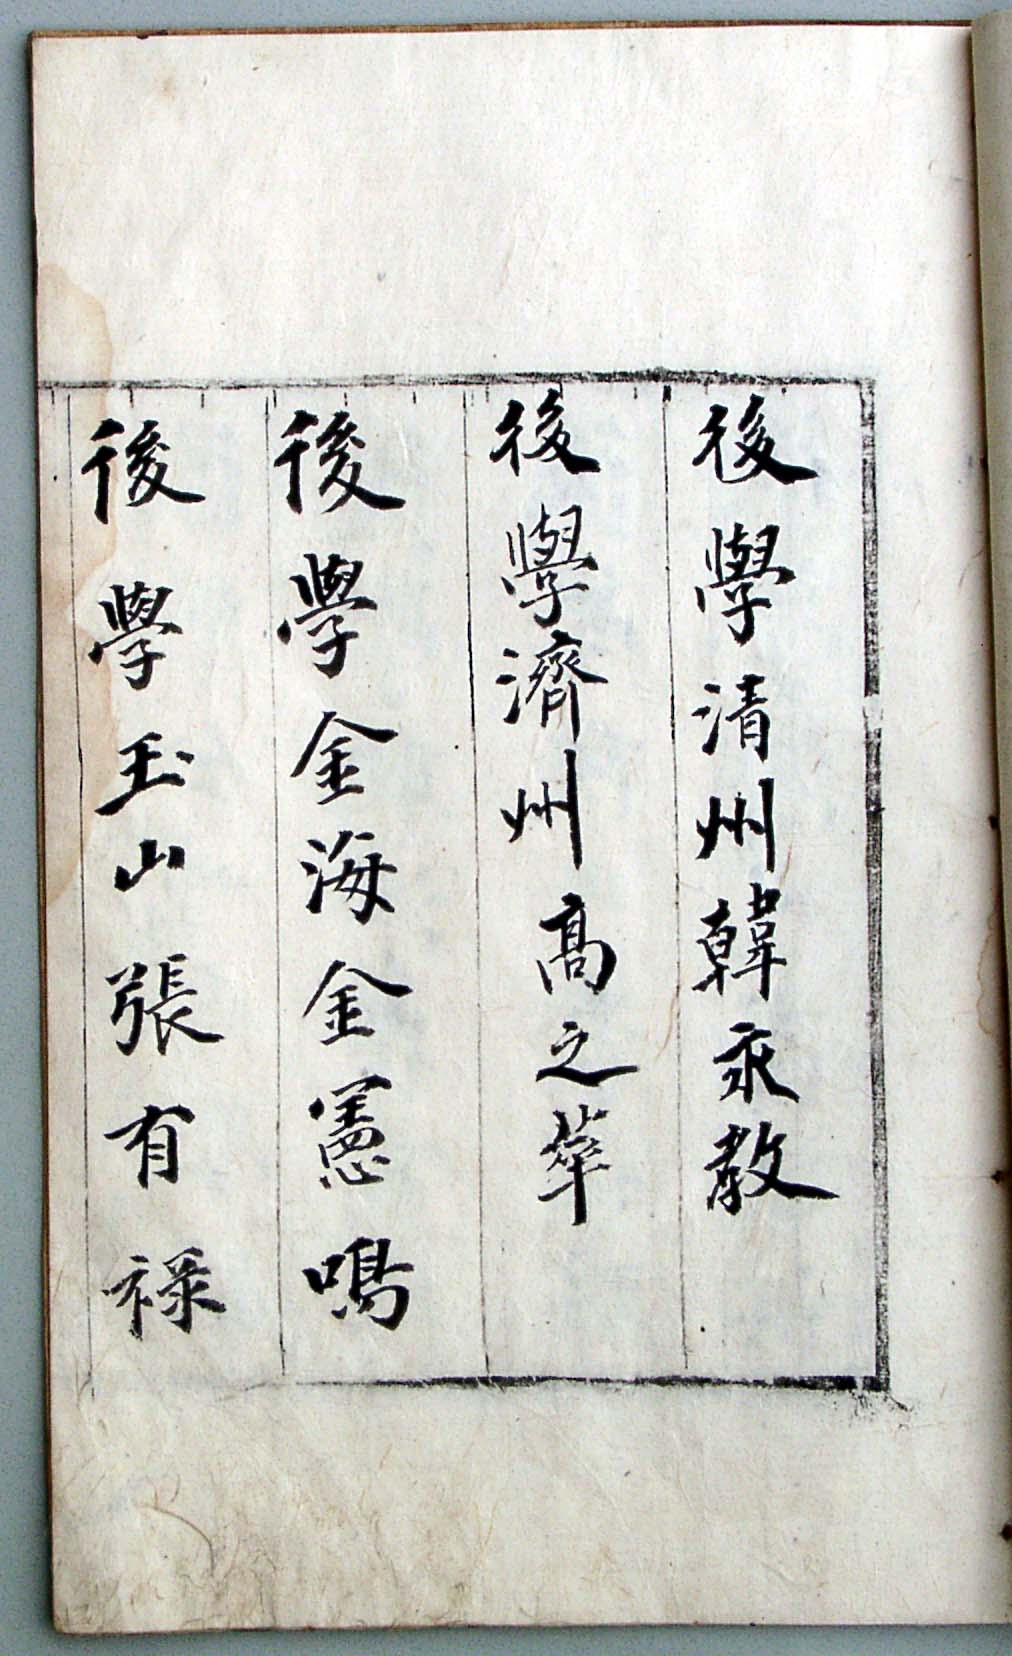 後學清州韓永敎
後學濟州高之華
後學金海金憲鳴
後學玉山張有祿